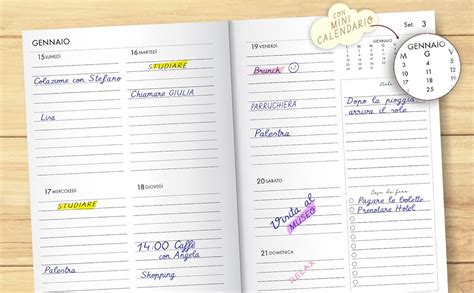 GENNAIO
15 LUNEDÌ
Colazione con Stefano
Lisa
16 MARTEDÌ
STUDIARE
Chiamare GIULIA
17 MERCOLEDÌ
STUDIARE
Palestra
18 GIOVEDÌ
14:00 Caffè
con Angela
Shopping
19 VENERDÌ
Brunch
PARRUCHIERA
Palestra
20 SABATO
Visita al
MUSEO
21 DOMENICA
RELAX
Set. 3
CON
MINI
CALENDARIO
GENNAIO
M G V
3 4 5
10 11 12
17 18 19
25
Note
Dopo la pioggia
arriva il sole
Cose da fare
Pagare le bollette
Prenotare Hotel